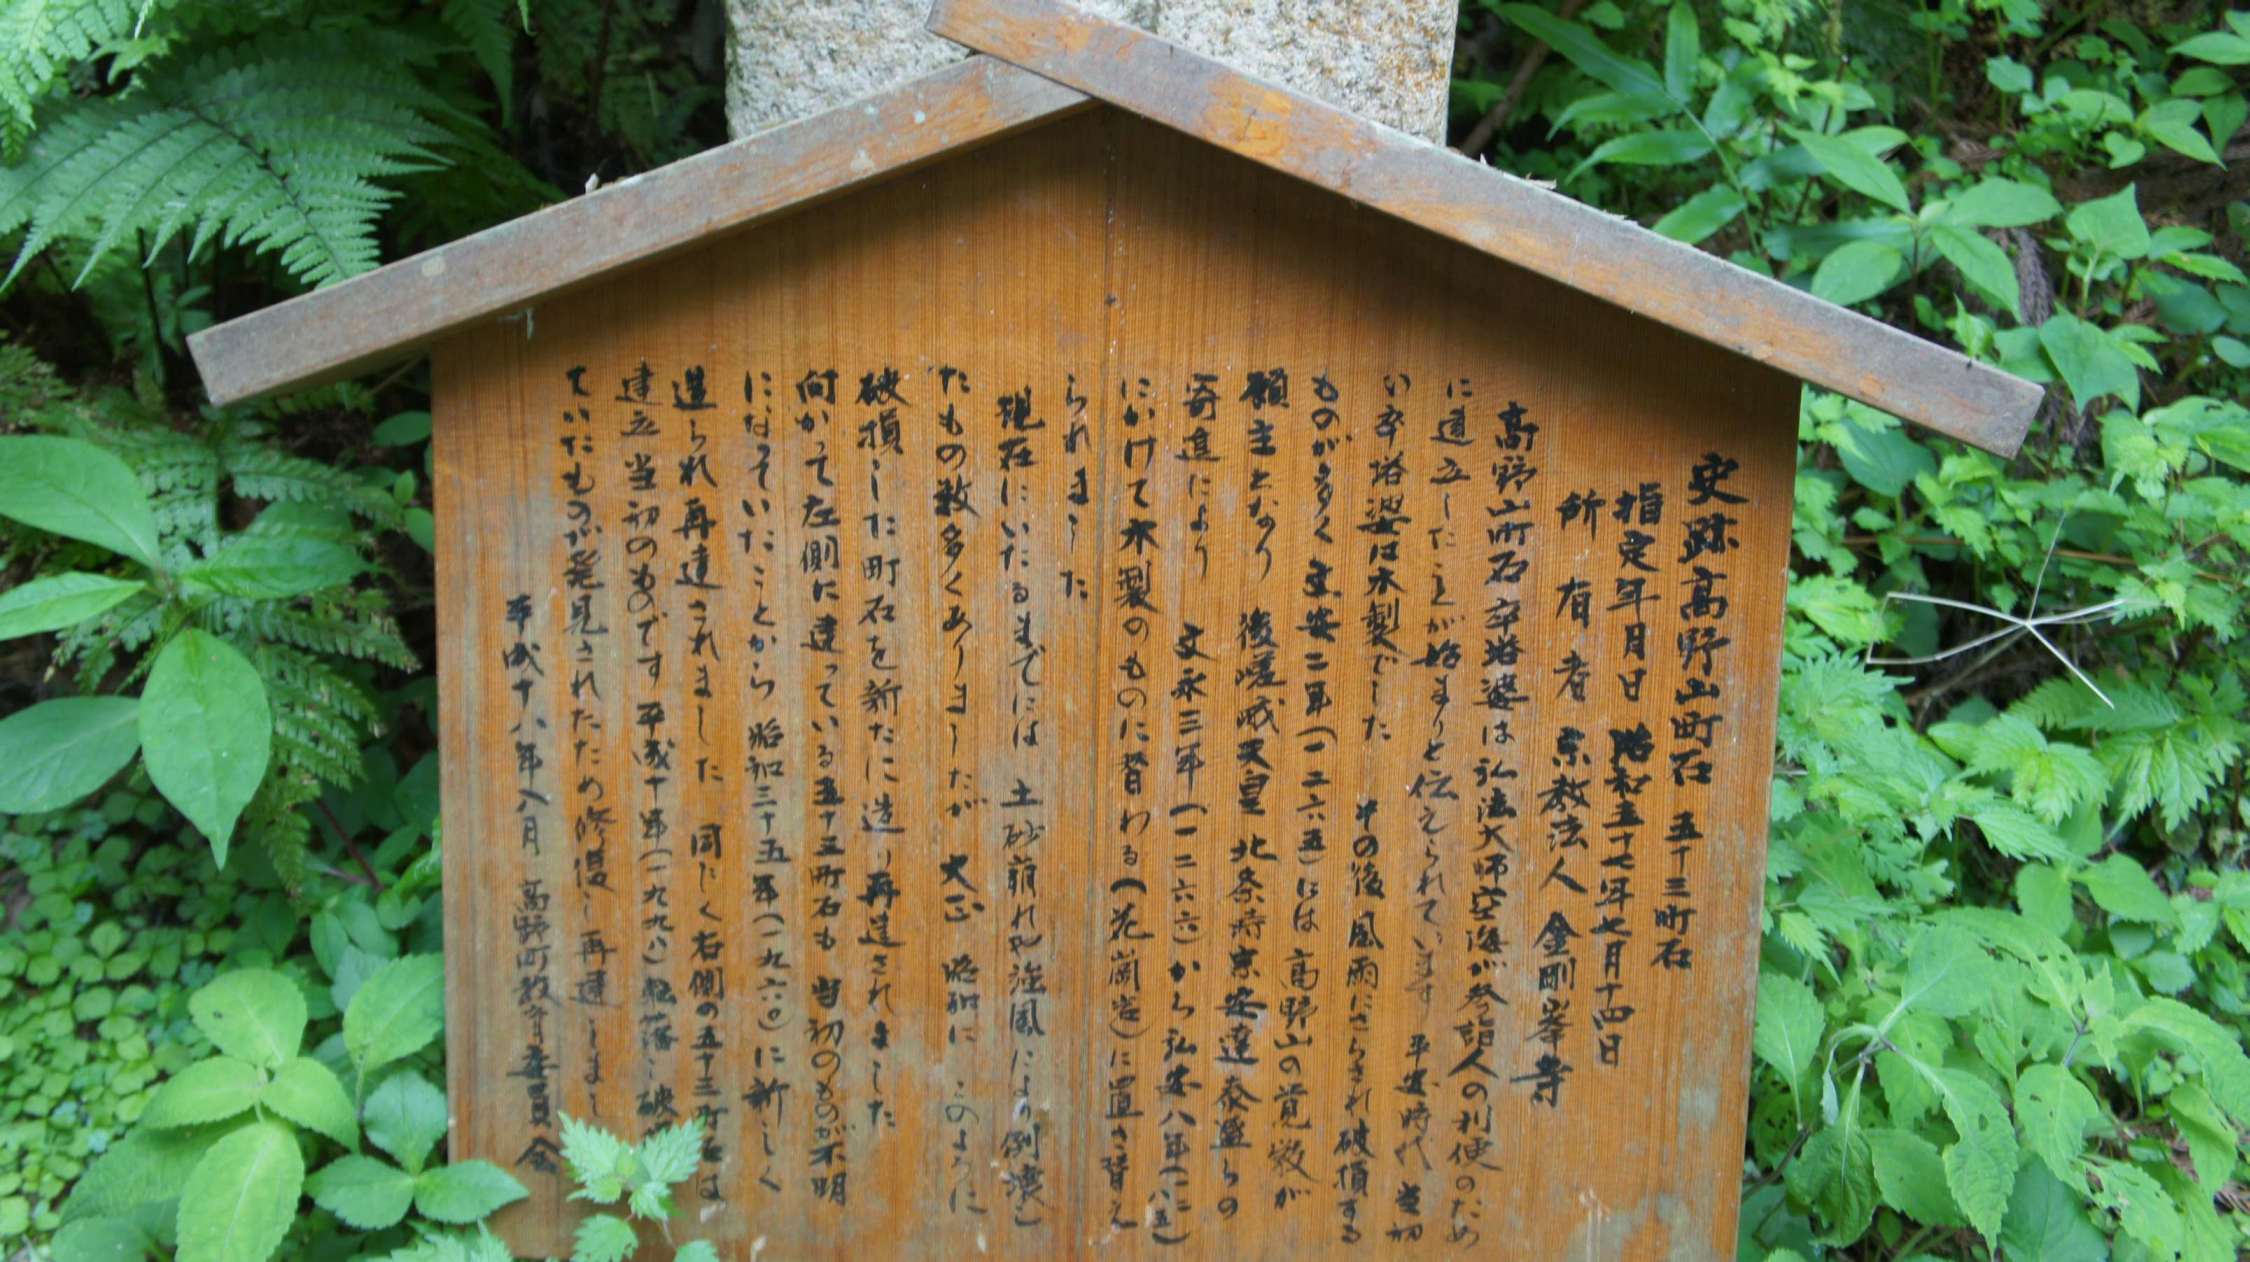 史跡高野山町石 五十三町石
指定年月日 昭和五十七年七月十四日
所有者 宗教法人 金剛峯寺
高野山町石卒塔婆は弘法大師空海が参詣人の利便のため
に建立したことが始まりと伝えられています 平安時代 当初
い卒塔婆は木製でした その後風雨にさらされ破損する
ものが多く文安二年(一二六五)には高野山の覚斅が
願主となり 後嵯峨天皇 北条時宗安達泰盛らの
寄進により 文永三年(一二六六)から弘安八年(一二八五)
にかけて木製のものに替わる(花崗岩)に置き替え
られました
現在にいたるまでには 土砂崩れや強風により倒壊し
たもの数多くありましたが 大正 昭和に このように
破損した町石を新たに造り再建されました
向かって左側に建っている五十三町石も 当初のものが不明
になっていたことから 昭和三十五年(一九六〇)に新しく
造られ再建されました 同じく右側の五十三町石は
建立当初のものです 平成十年(一九九八)転落し破
ていたものが発見されたため修復し再建しまし
平成十八年八月 高野町教育委員会